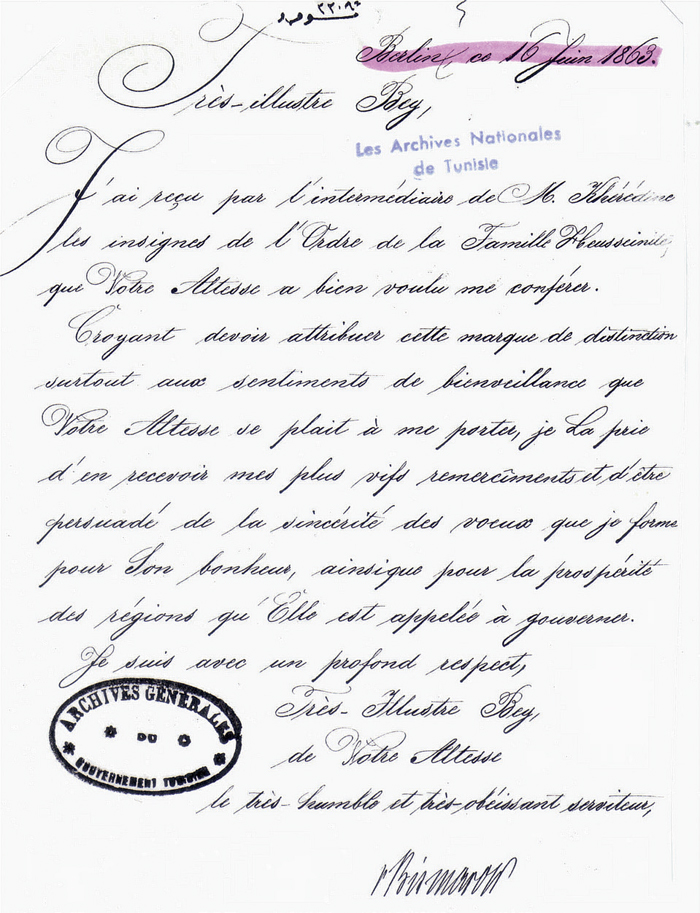 ٢٣٠٩٠
Berlin, ce 16 Juin 1863.
Très-illustre Bey,
Les Archives Nationales
de Tunisie
J'ai reçu par l'intermédiaire de M. Khérédine
les insignes de l'Ordre de la Famille Husseinite,
que Votre Altesse a bien voulu me conférer.
Croyant devoir attribuer cette marque de distinction
surtout aux sentiments de bienveillance que
Votre Altesse se plait à me porter, je La prie
d'en recevoir mes plus vifs remercîments et d'être
persuadé de la sincérité des voeux que je forme
pour Son bonheur, ainsique pour la prospérité
des régions qu'Elle est appelée à gouverner.
Je suis avec un profond respect,
Très-Illustre Bey,
de Votre Altesse
le très-humble et très-obéissant serviteur,
v Bismarck
ARCHIVES GÉNÉRALES
DU
GOUVERNEMENT TUNISIEN